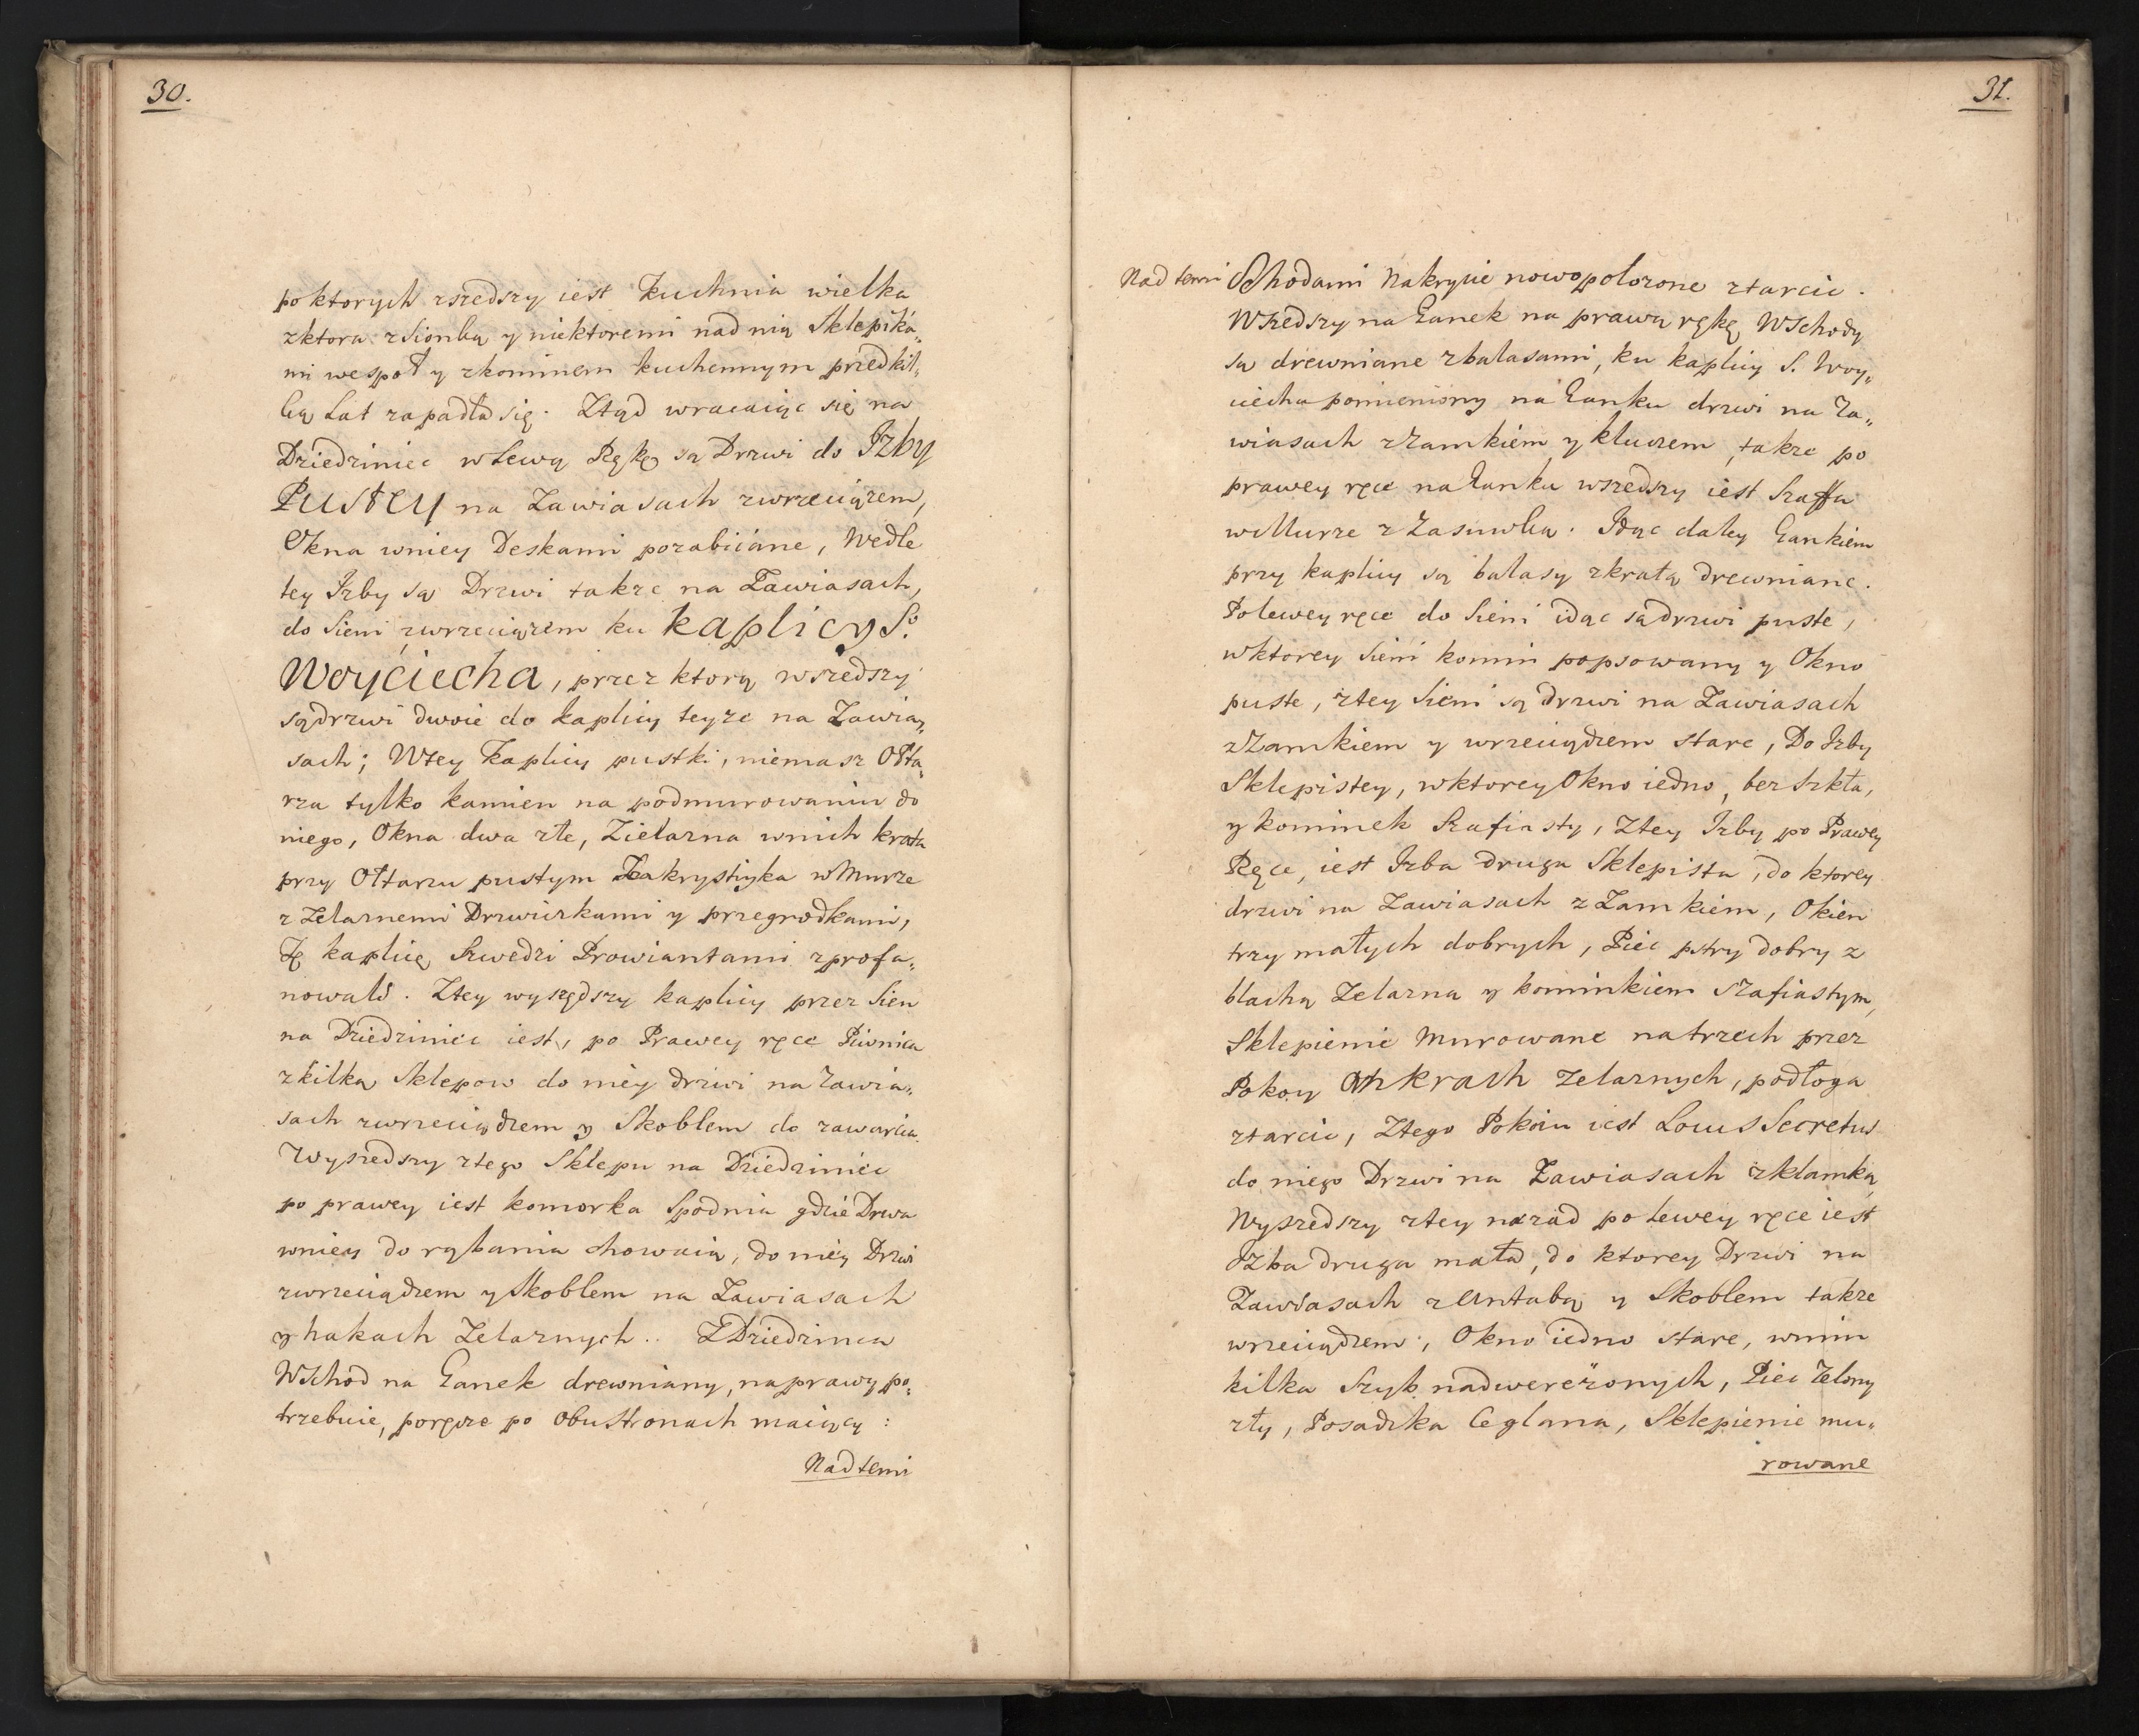 30.
po ktorych zszedszy iest Kuchnia wielka
zktora z Sionką y niektoremi nad nią Sklepika„
mi wespoł y zkominem kuchennym przed kil„
ką Lat zapadła się. Ztąd wracaiąc się na
Dziedziniec w Lewą Rękę są Drzwi do Izby
Pustey na Zawiasach zwrzeciązem,
Okna wniey Deskami pozabiiane, Wedle
tey Izby są Drzwi takze na Zawiasach,
do Sieni zwrzeciązem ku kaplicy S.o
Woyciecha, przez ktorą wszedszy
są drzwi dwoie do kaplicy teyze na Zawia„
sach; Wtey Kaplicy pustki, niemasz Ołta„
rza tylko kamien na podmurowaniu do
niego, Okna dwa złe, Zielazna wnich krata
przy Ołtarzu pustym Zakrystiyka w Murze
z Zelaznemi Drzwiczkami y przegrodkami,
Tę kaplicę Szwedzi Prowiantami zprofa„
nowali. Ztey wyszędszy kaplicy przez Sien
na Dziedziniec iest, po Prawey ręce Piwnica
zkilką Sklepow do niey drzwi na zawia„
sach zwrzeciądzem y Skoblem do zawarcia.
Wyszedszy ztego Sklepu na Dziedziniec
po prawey iest komorka Spodnia gdzie Drwa
wniey do rąbania chowaią, do niey Drzwi
zwrzeciądzem y Skoblem na Zawiasach
y hakach Zelaznych.. Z Dziedzinca
Wschod na Ganek drewniany, naprawy po„
trzebuie, poręcze po obu Stronach maiący:
Nad temi
31.
Nad temi Schodami Nakrycie nowo połozone ztarcic.
Wszedszy na Ganek na prawą rękę Wschody
są drewniane zbalasami, ku kaplicy S. Woy„
ciecha pomieniony na Ganku drzwi na Za„
wiasach zzamkiem y kluczem, takze po
prawey ręce na Ganku wszedszy iest Szaffa
w Murze z Zasuwką. Idąc daley Gankiem
przy kaplicy są balasy zkratą drewniane.
Po lewey ręce do Sieni idąc są drzwi puste,
wktorey Sieni komin popsowany y Okno
puste, ztey Sieni są drzwi na Zawiasach
zZamkiem y wrzeciądzem stare, Do Izby
Sklepistey, wktorey Okno iedno, bez Szkła,
y kominek Szafiasty, Ztey Izby po Prawey
Ręce, iest Izba druga Sklepista, do ktorey
drzwi na Zawiasach z Zamkiem, Okien
trzy małych dobrych, Piec pstry dobry z
blachą Zelazna y kominkiem Szafiastym,
Sklepienie Murowane na trzech przez
Pokoy Ankrach Zelaznych, podłoga
ztarcic, Ztego Pokoiu iest Locus Secretus
do niego Drzwi na Zawiasach zklamką
Wyszedszy ztey nazad po lewey ręce iest
Izba druga mała, do ktorey Drzwi na
Zawiasach z Antabą y Skoblem takze
wrzeciądzem, Okno iedno stare, wnim
kilka Szyb nadwerężonych, Piec Zelony
zły, Posadzka Ceglana, Sklepienie mu„
rowane